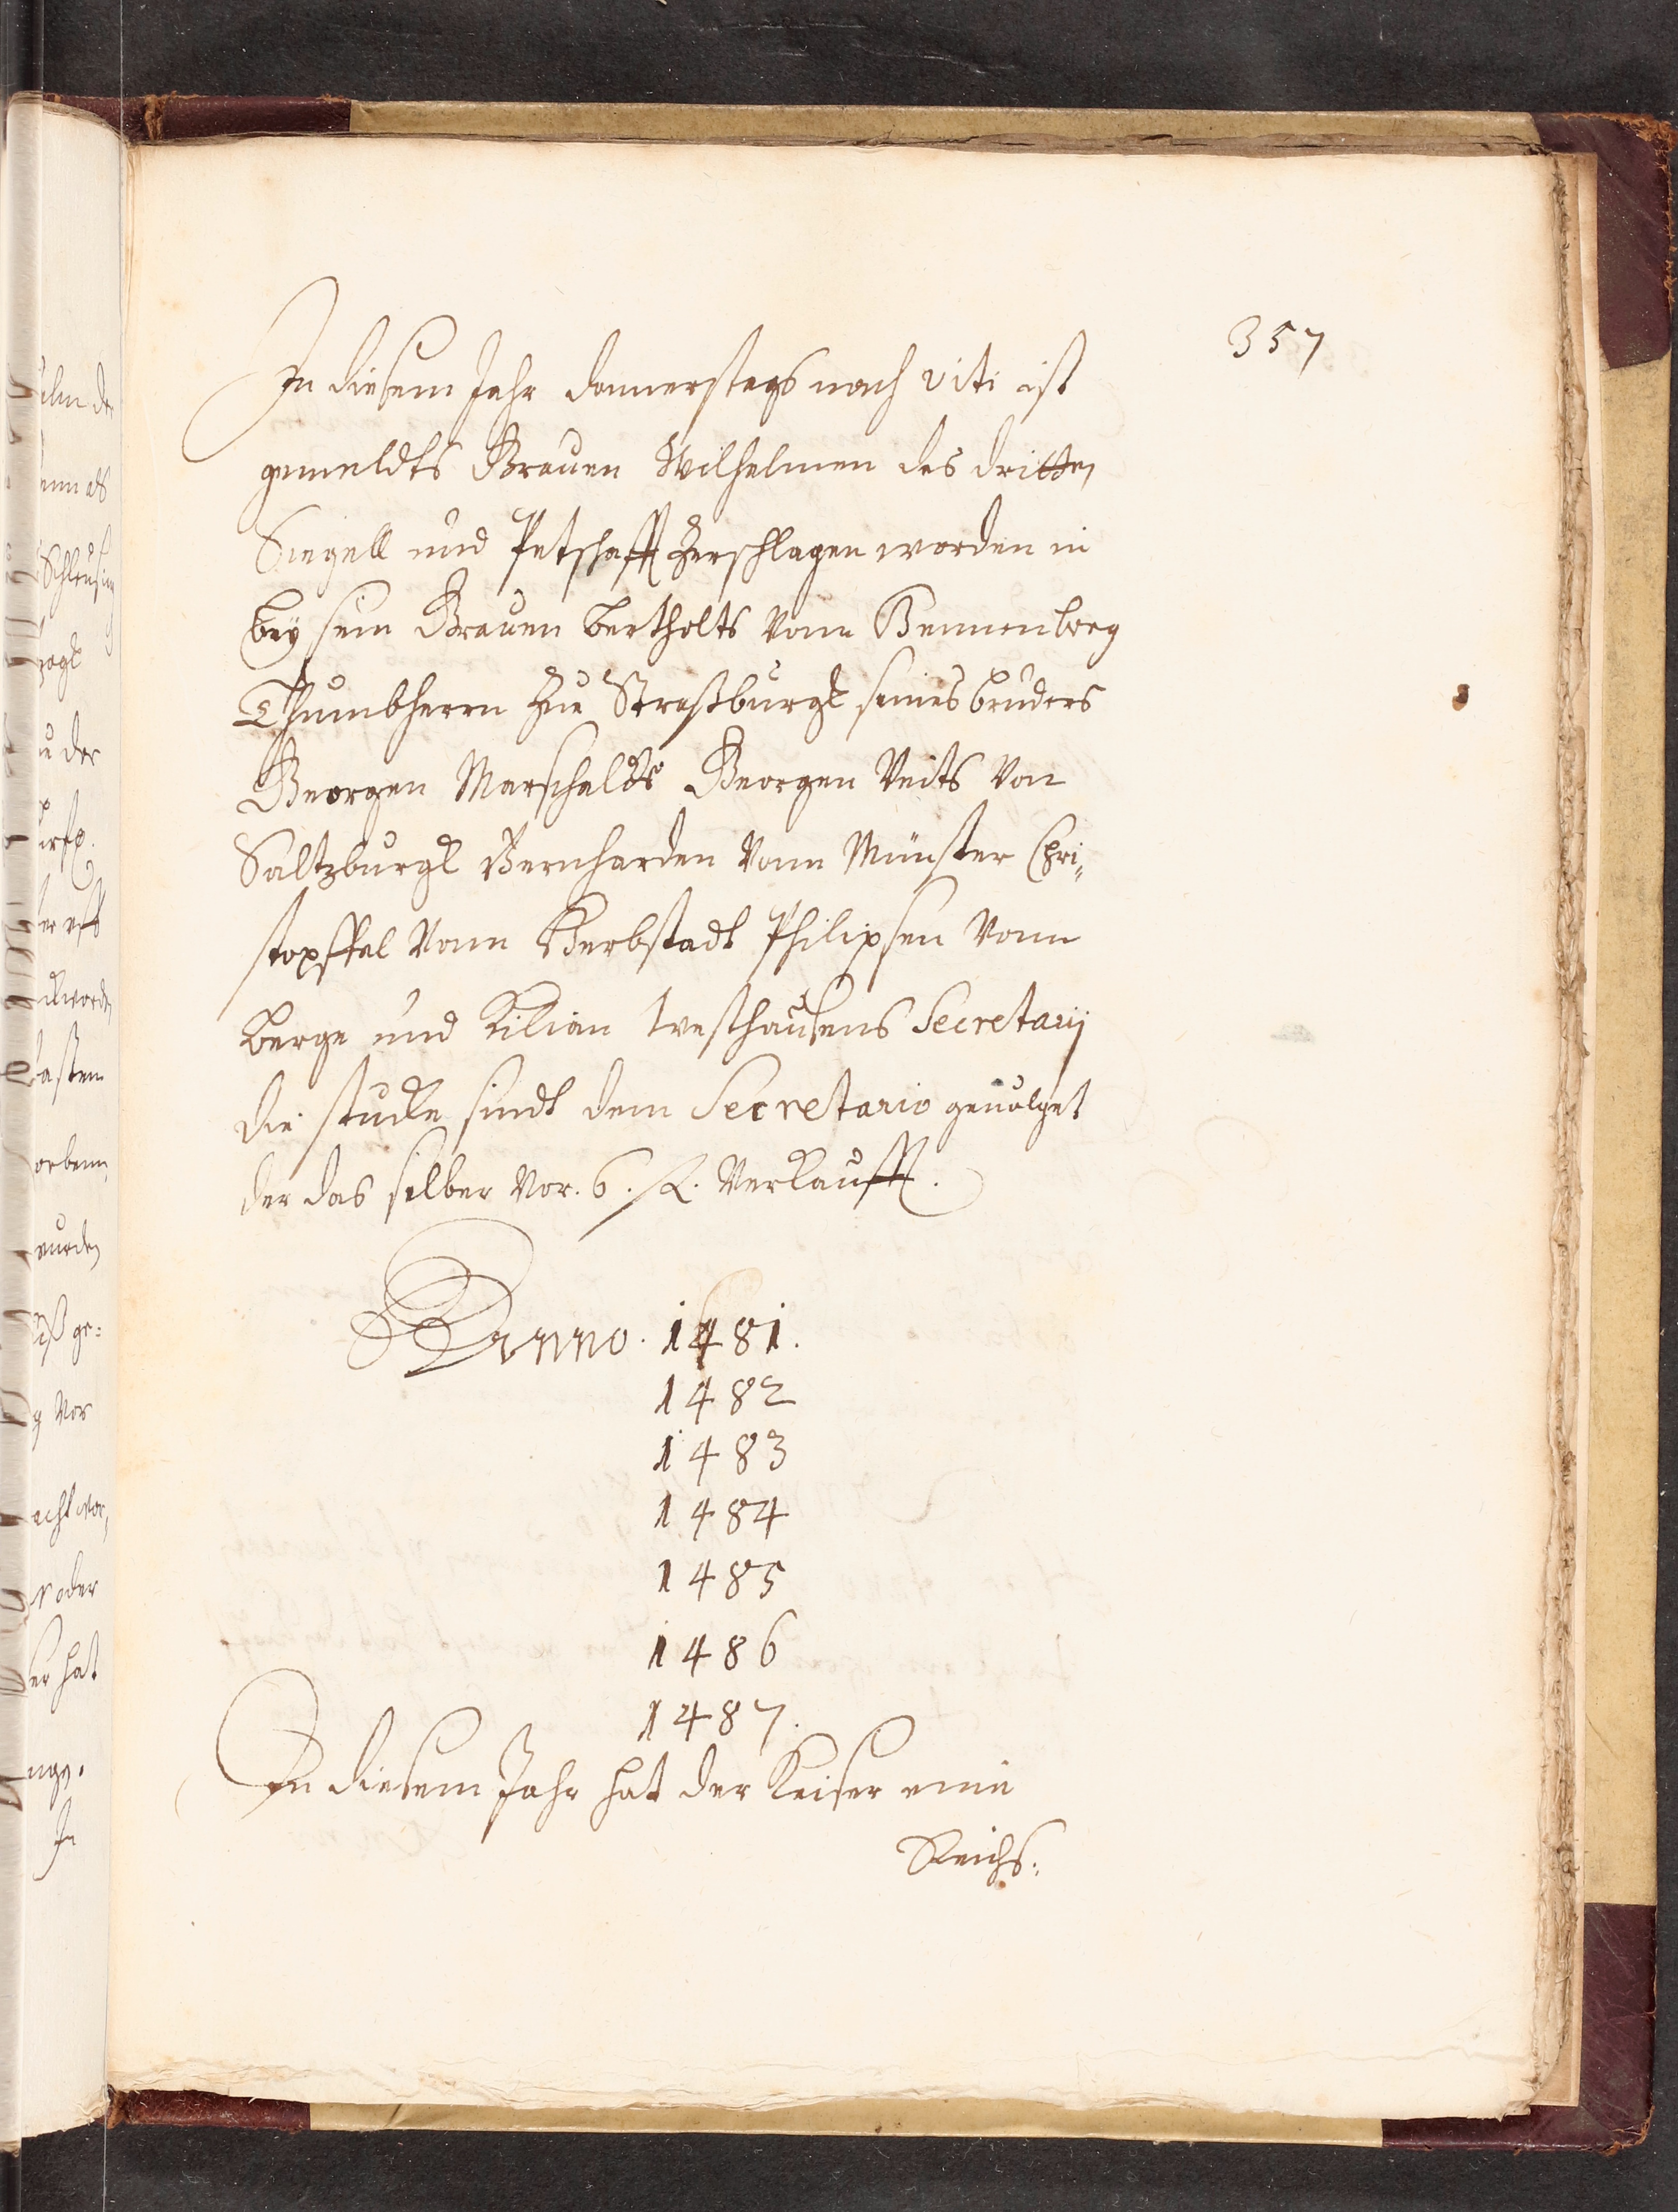 357
In diesem Jahr donnerstags nach viti ist
gemeldts Grauen Wilhelmen des dritten
Siegell und Petschafft zerschlagen worden in
bey sein Grauen Bertholts vonn Hennenberg
Thumbherrn zue Straßburgk seines bruders
Georgen Marschalcks Georgen Veits von
Saltzburgk Bernharden vonn Münster Chri„
stopffel vonn Herbstadt Philipsen vonn
Berge und Kilian Westhausens Secretarij
die stucke sindt dem Secretario geuolget
der das silber vor. 6. fl. verkaufft.
Anno. 1481.
1482
1483
1484
1485
1486
1487.
In diesem Jahr hat der Keiser eine
Reichs.